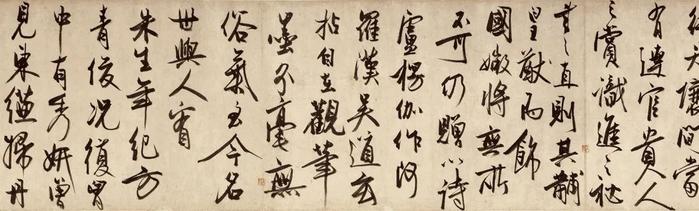 大壤間當
有達官貴人
之賞識進之秘
之直則其黼
皇猷而飾
國媺將無所
不可仍贈以詩
盧楞伽作阿
羅漢吳道玄
拈自在觀筆
墨不毫無
俗氣至今名
世與人
朱生年紀方
青俊況復胃
中有秀妍曾
見東掃丹